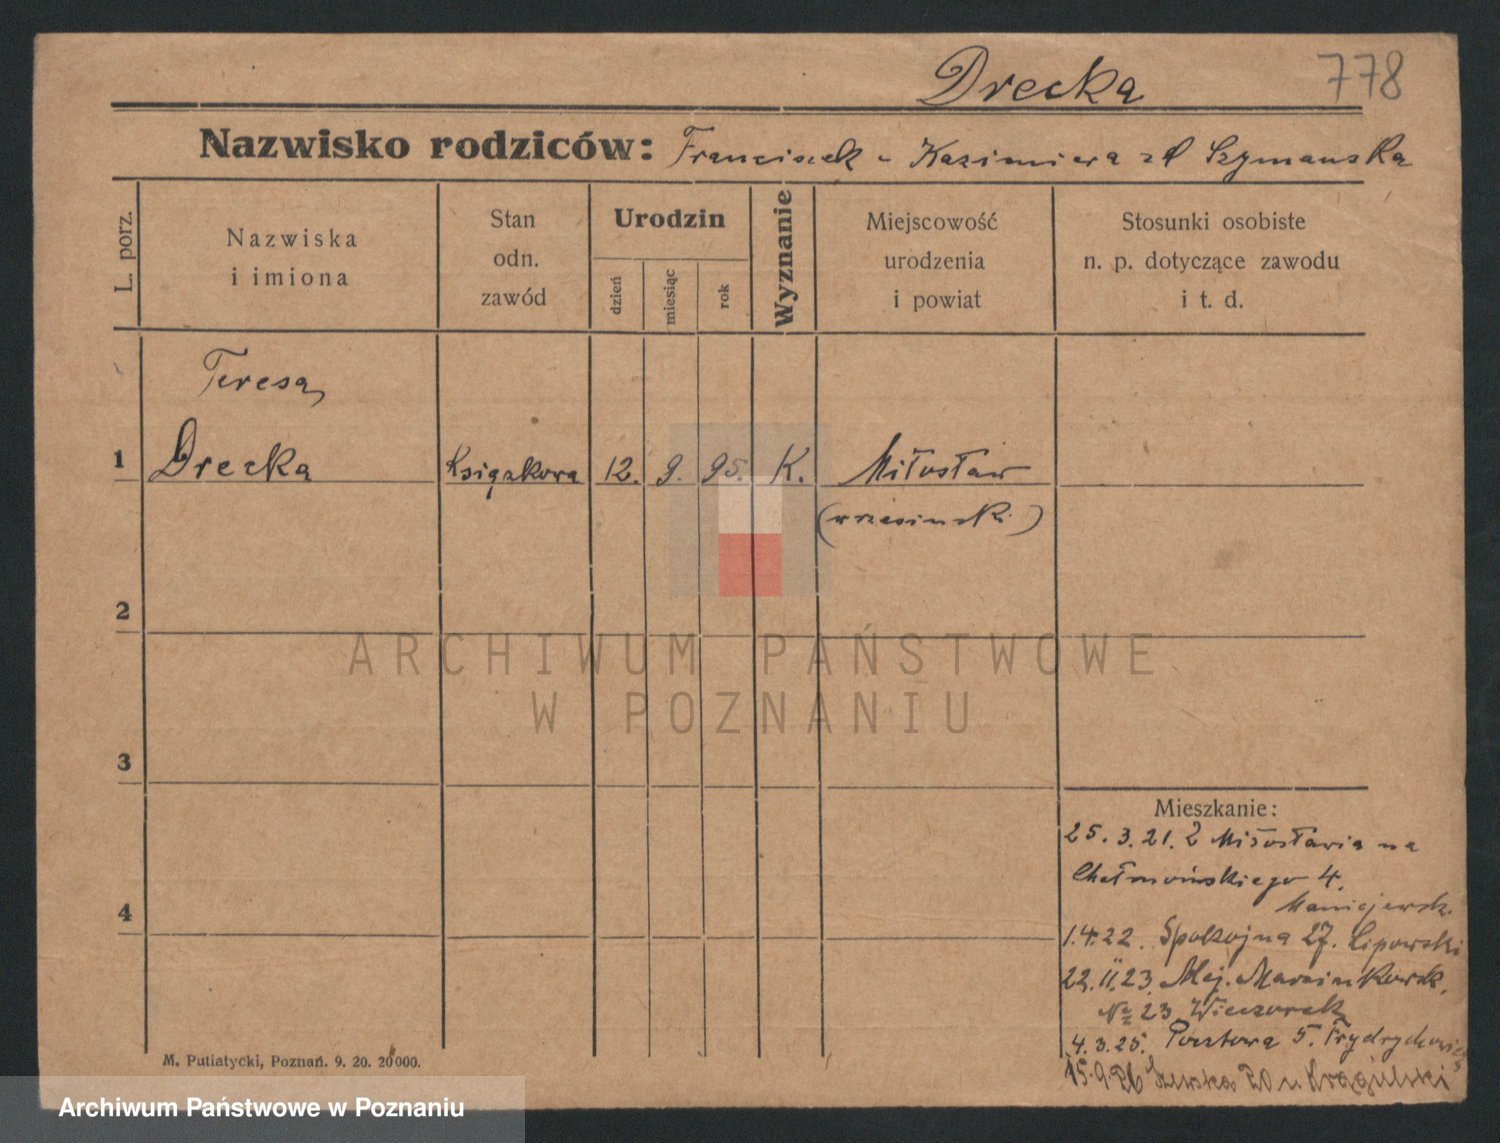 Drecka 778
Nazwisko rodziców: Franciszek - Kazimiera zd Szymańska
L. porz.
Nazwiska
i imiona
Stan
odn.
zawód
Urodzin
dzień
miesiąc
rok
Wyznanie
Miejscowość
urodzenia
i powiat
Stosunki osobiste
n. p. dotyczące zawodu
i t. d.
Teresa
1 Drecka Książkowa 12. 9. 95. K. Miłosław
(wrzesiński)
2
3
4
ARCHIWUM PAŃSTWOWE
W POZNANIU
Mieszkanie:
25.3.21. Z Miłosławia na
Chełmońskiego 4.
Maniejewsk.
1.4.22. Spokojna 27. Lipowski
22.II.23. Alej. Marcinkowsk.
No 23 Wieczorek
4.3.25. Pocztowa 5. Frydrychowicz
15.9.26 Szewska 20 u Krągulski
M. Putiatycki, Poznań. 9. 20. 20000.
Archiwum Państwowe w Poznaniu